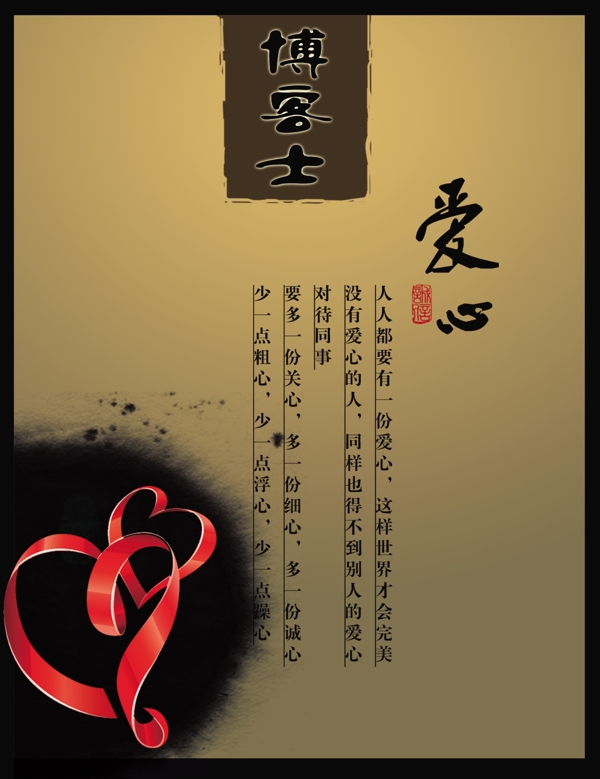 博客士
爱心
誠信
人人都要有一份爱心，这样世界才会完美
没有爱心的人，同样也得不到别人的爱心
对待同事
要多一份关心，多一份细心，多一份诚心
少一点粗心，少一点浮心，少一点躁心